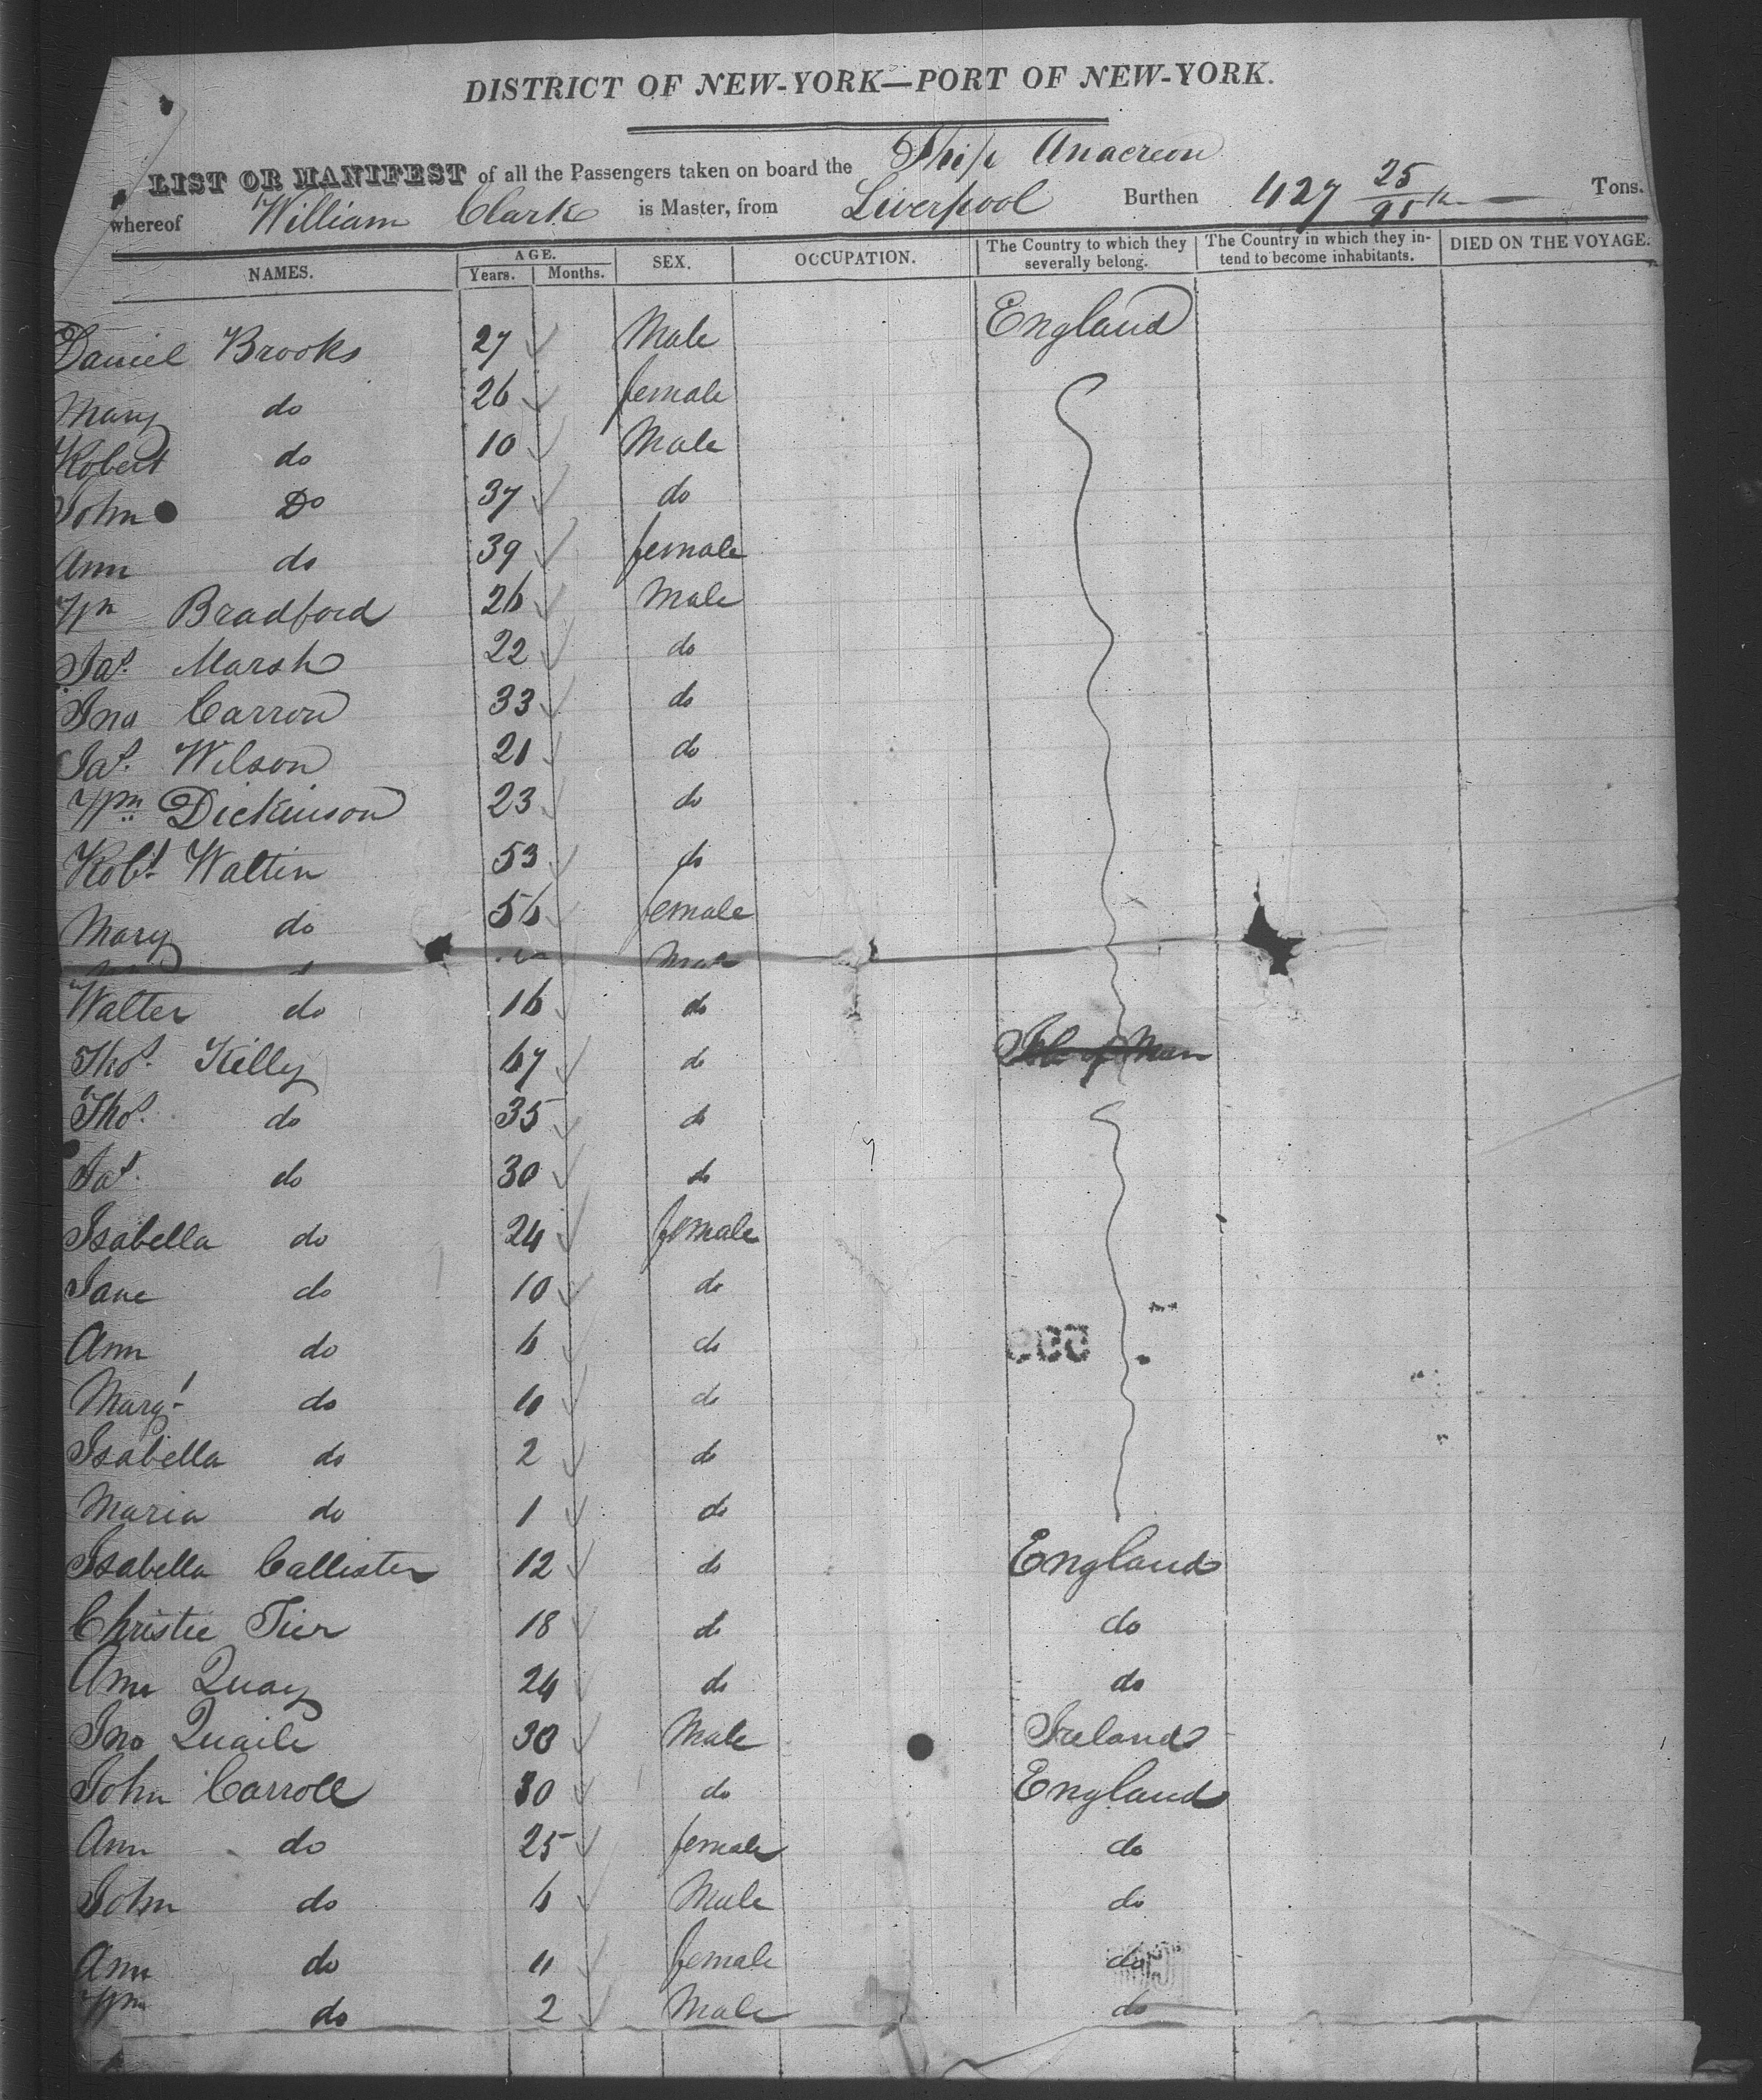 DISTRICT OF NEW-YORK—PORT OF NEW-YORK.
LIST OR MANIFEST of all the Passengers taken on board the Ship Anacreon
whereof William Clark is Master, from Liverpool Burthen 427 25/95 Tons.
NAMES. AGE. Years. Months. SEX. OCCUPATION. The Country to which they severally belong. The Country in which they intend to become inhabitants. DIED ON THE VOYAGE.
Daniel Brooks 27 Male England
Mary do 26 female
Robert do 10 Male
John Do 37 do
Ann do 39 female
Wm Bradford 26 Male
Jas. Marsh 22 do
Jno Carron 33 do
Jas. Wilson 21 do
Wm Dickinson 23 do
Robt. Waltin 53 do
Mary do 56 female
Male
Walter do 16 do
Thos. Kelly 67 do Isle of Man
Thos. do 35 do
Jas. do 30 do
Isabella do 24 female
Jane do 10 do
Ann do 6 do
Margt do 4 do
Isabella do 2 do
Maria do 1 do
Isabella Callister 12 do England
Christie Tier 18 do do
Ann Quay 24 do do
Jno Quaile 30 Male Ireland
John Carroll 30 do England
Ann do 25 female do
John do 6 Male do
Ann do 4 female do
Wm do 2 Male do